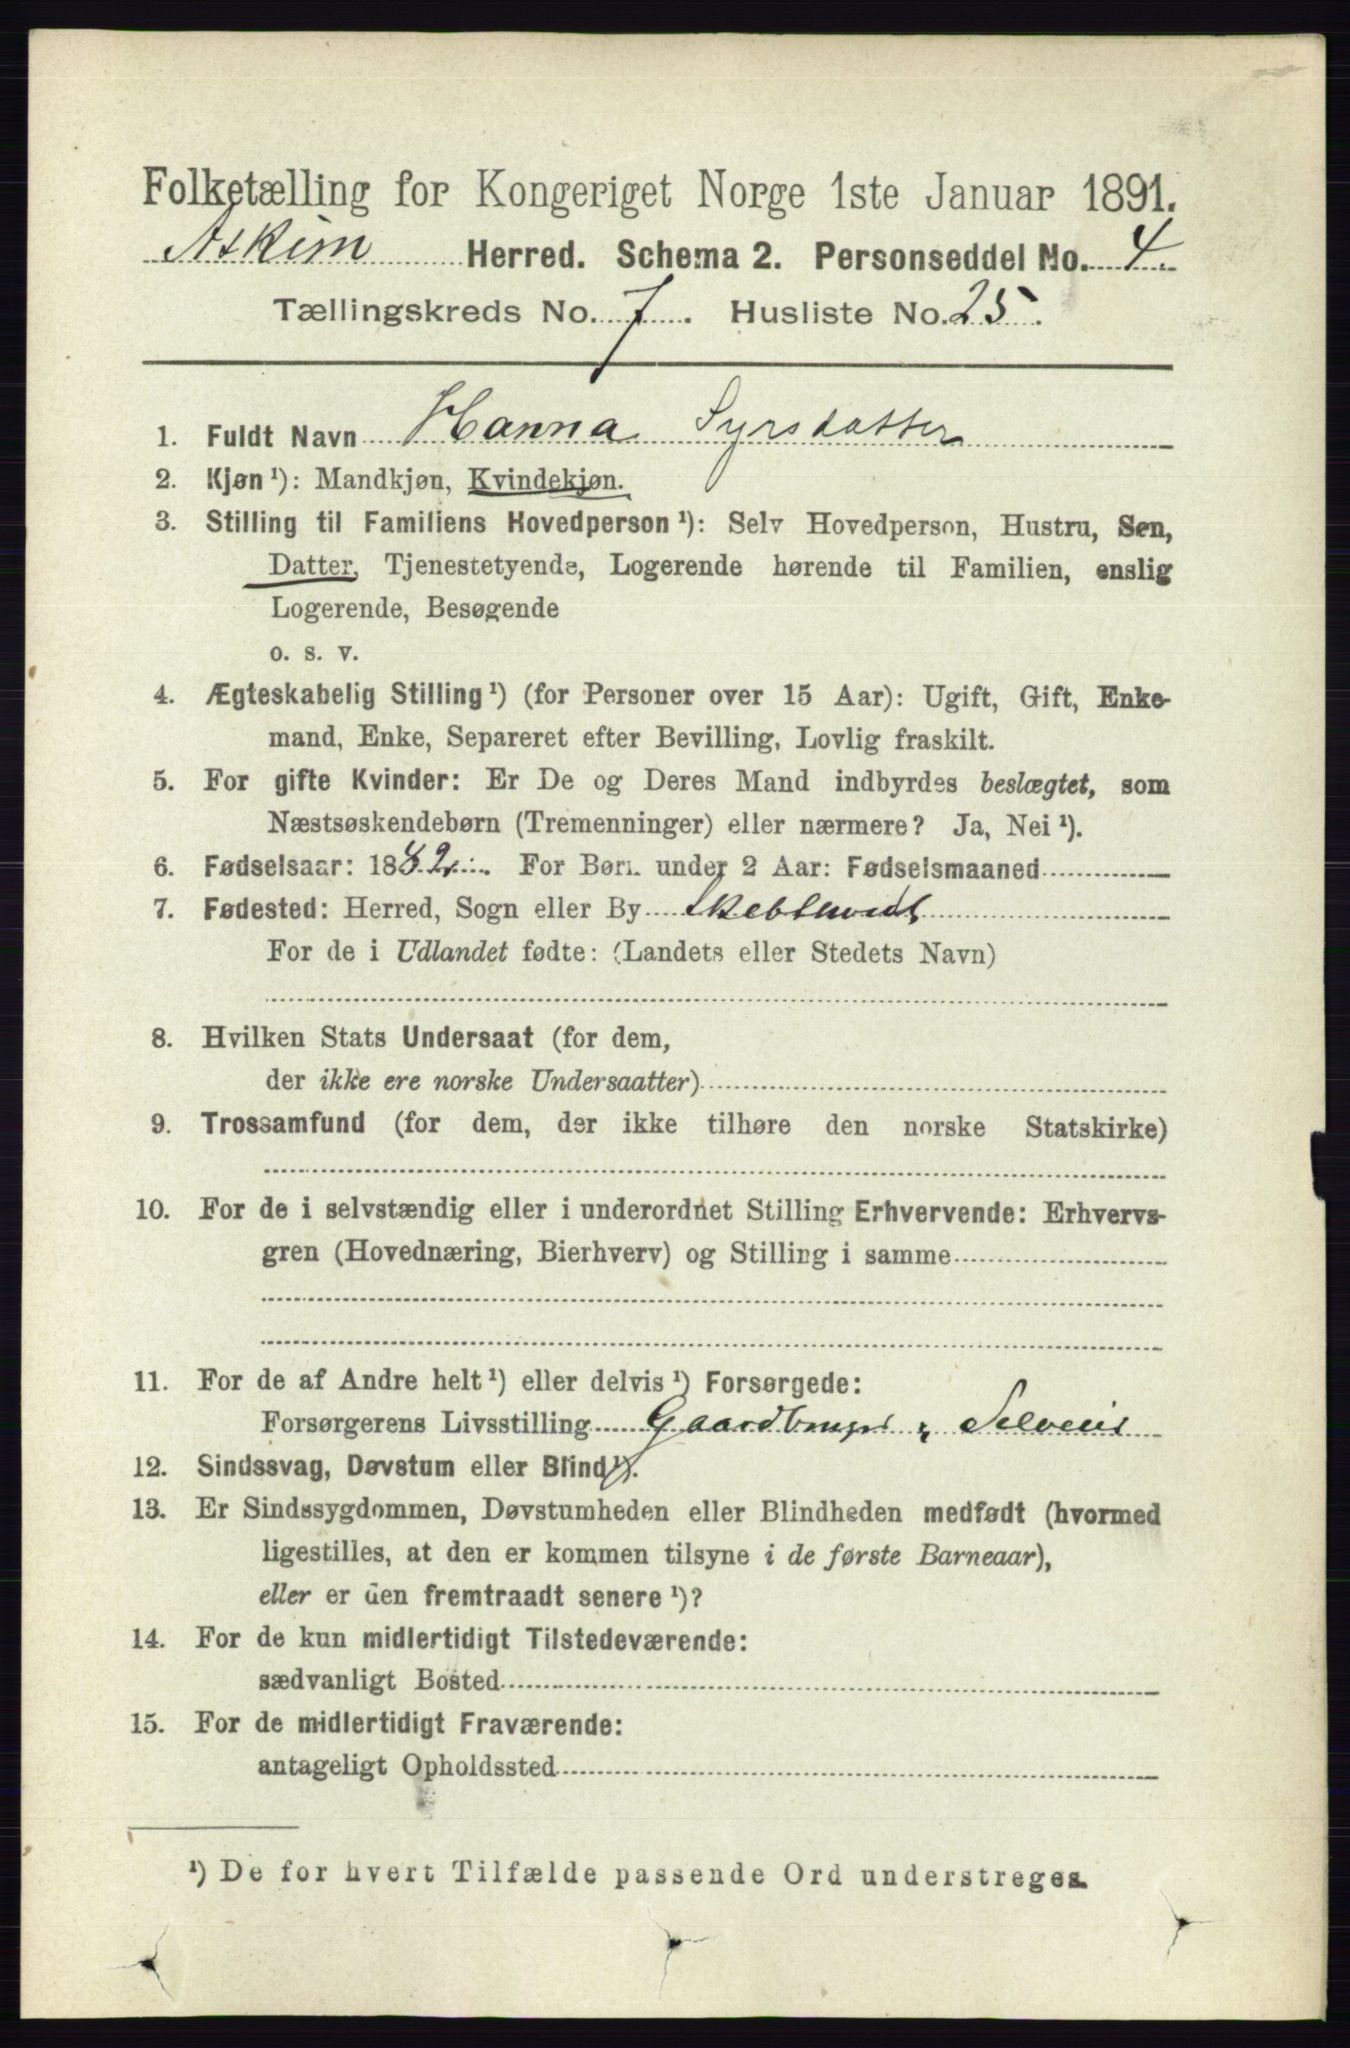 Folketælling for Kongeriget Norge 1ste Januar 1891.
Askim Herred. Schema 2. Personseddel No. 4.
Tællingskreds No. 7. Husliste No. 25.
1. Fuldt Navn Hanna Syrsdatter
2. Kjøn¹): Mandkjøn, Kvindekjøn.
3. Stilling til Familiens Hovedperson¹): Selv Hovedperson, Hustru, Søn,
Datter, Tjenestetyende, Logerende hørende til Familien, enslig
Logerende, Besøgende
o. s. v.
4. Ægteskabelig Stilling¹) (for Personer over 15 Aar): Ugift, Gift, Enke-
mand, Enke, Separeret efter Bevilling, Lovlig fraskilt.
5. For gifte Kvinder: Er De og Deres Mand indbyrdes beslægtet, som
Næstsøskendebørn (Tremenninger) eller nærmere? Ja, Nei¹).
6. Fødselsaar: 1882. For Børn under 2 Aar: Fødselsmaaned
7. Fødested: Herred, Sogn eller By
For de i Udlandet fødte: (Landets eller Stedets Navn)
8. Hvilken Stats Undersaat (for dem,
der ikke ere norske Undersaatter)
9. Trossamfund (for dem, der ikke tilhøre den norske Statskirke)
10. For de i selvstændig eller i underordnet Stilling Erhvervende: Erhvervs-
gren (Hovednæring, Bierhverv) og Stilling i samme
11. For de af Andre helt¹) eller delvis¹) Forsørgede:
Forsørgerens Livsstilling Gaardbruger
12. Sindssvag, Døvstum eller Blind¹).
13. Er Sindssygdommen, Døvstumheden eller Blindheden medfødt (hvormed
ligestilles, at den er kommen tilsyne i de første Barneaar),
eller er den fremtraadt senere¹)?
14. For de kun midlertidigt Tilstedeværende:
sædvanligt Bosted
15. For de midlertidigt Fraværende:
antageligt Opholdssted
¹) De for hvert Tilfælde passende Ord understreges.